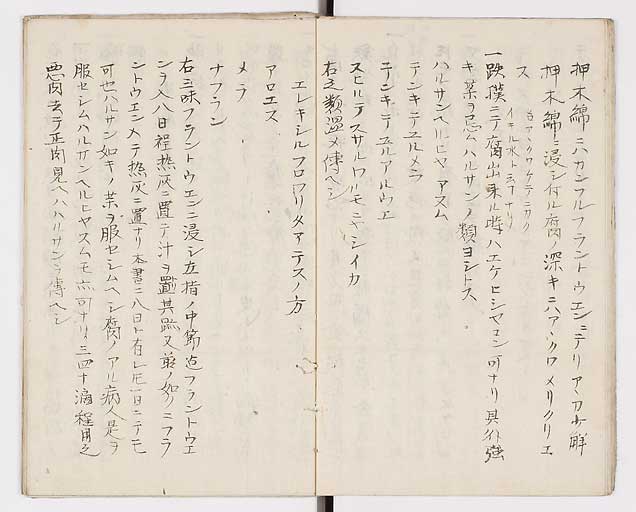 押木綿ニハカンフルフラントウエンニテリアアカ少解
押木綿ニ浸シ付ル腐ノ深キニハアンクワメリクリエ
ス
イキル水ト云フナリ
一跌撲ニテ腐出来ル時ハエケヒシヤエン可ナリ具外強
キ薬ヲ忌ムハルサンノ類ヨシトス
ハルサンヘルヒヤアスム
テンキテユルメラ
テンキテユルアルウエ
スヒルテスサルワルモニヤシイカ
右之類温メ傳ヘシ
エレキシルフロワリタアテスノ方
アロエス
メラ
サフラン
右三味フラントウエンニ浸シ立指ノ中節迠フラントウエ
ンヲ入八日程热灰ニ置テ汁ヲ 其跡又前ノ如クニフラ
ントウエンメテ热灰ニ置ナリ本書ニ八日ト有レ𪜈一日ニテモ
可也ハルサン如キノ薬ヲ服セシムヘシ腐ノアル病人是ヲ
服セシムハルサンヘルヒヤスムモ亦可ナリ三四十滴程用之
悪肉去テ正肉見ヘハハルサンヲ傳ヘシ